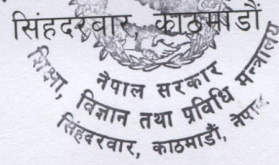 सिंहदरवार, काठमाडौं
नेपाल सरकार
शिक्षा, विज्ञान तथा प्रविधि मन्त्रालय
सिंहदरवार, काठमाडौं, नेपाल